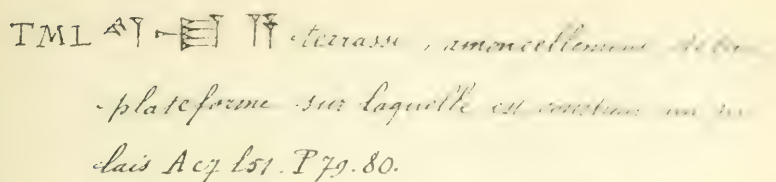 TML 𒌓𒆷𒀀 terrasse, amoncellement de
plateforme sur laquelle est construit un
lais A c7 l51. P 79. 80.